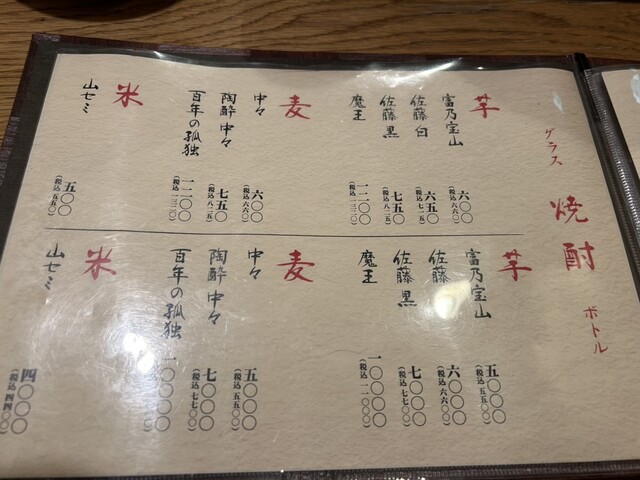 焼酎
グラス
芋
富乃宝山
六〇〇
(税込 六六〇)
佐藤 白
六五〇
(税込 七一五)
佐藤 黒
七五〇
(税込 八二五)
魔王
一二〇〇
(税込 一三二〇)
麦
中々
六〇〇
(税込 六六〇)
陶酔 中々
七五〇
(税込 八二五)
百年の孤独
一二〇〇
(税込 一三二〇)
米
山七ミ
五〇〇
(税込 五五〇)
ボトル
芋
富乃宝山
五〇〇〇
(税込 五五〇〇)
佐藤 白
六〇〇〇
(税込 六六〇〇)
佐藤 黒
七〇〇〇
(税込 七七〇〇)
魔王
一〇〇〇〇
(税込 一一〇〇〇)
麦
中々
五〇〇〇
(税込 五五〇〇)
陶酔 中々
七〇〇〇
(税込 七七〇〇)
百年の孤独
一〇〇〇〇
米
山七ミ
四〇〇〇
(税込 四四〇〇)